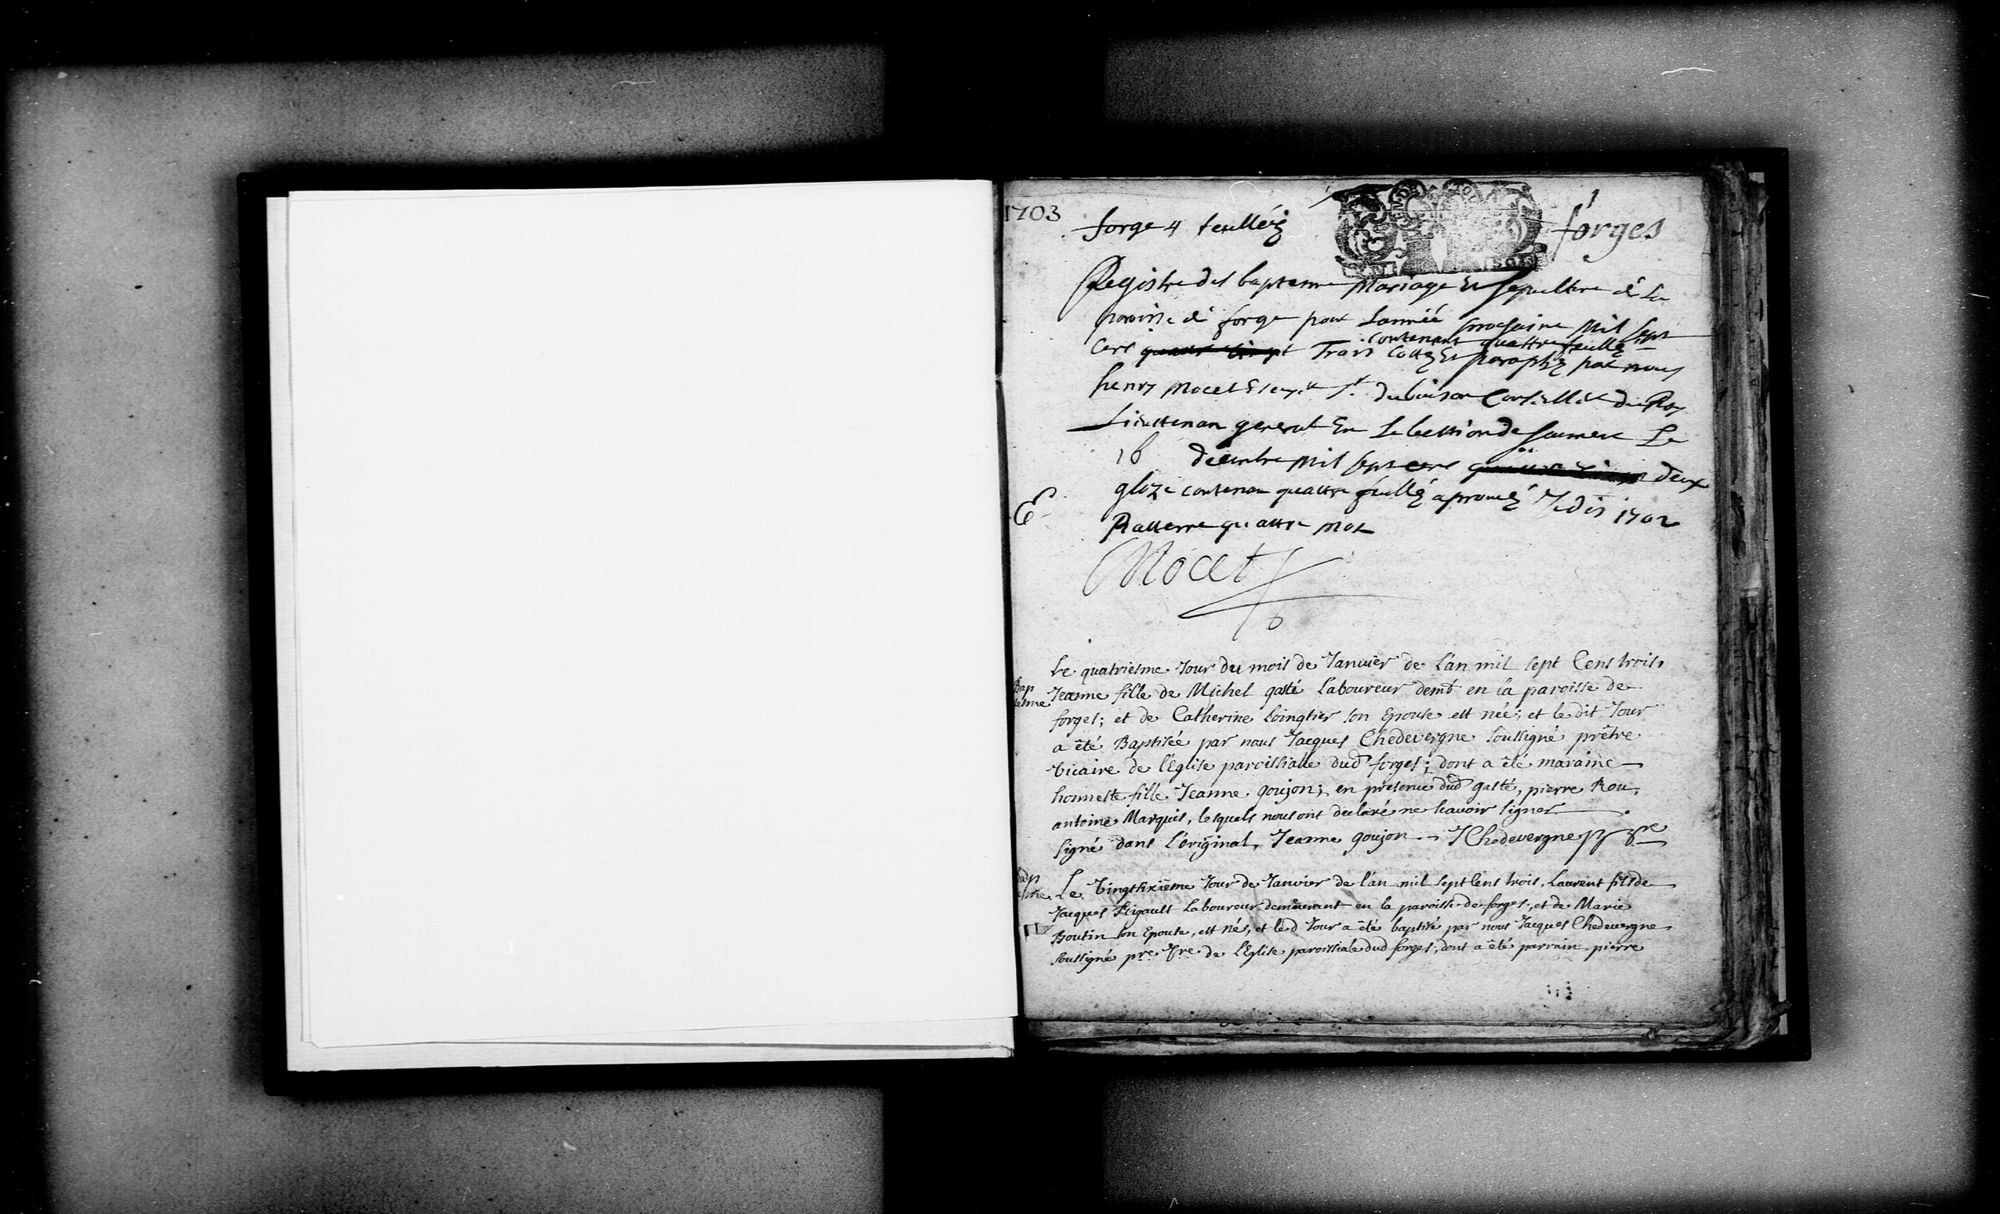 1703
forge 4 feullez
forges
Registre des baptesme Mariage Et sepulture de la
paroisse de forge pour Lannéé prochaine Mil sept
contenant quattre feullez
cens Trois Cotté Et paraphé par nous
henry Mocet du buison Conseiller du Roy
Lieuttenan general En Lelection de saumur Le
16 decembre Mil sept cens deux
gloze contenan quattre feullé aprouvé 1702
Ratterre quattre mot
Mocet
Bap
tesme
Le quatriesme Jour du mois de Janvier de L'an mil sept Cens trois,
Jeanne fille de Michel gasté Laboureur demt en la paroisse de
forges; et de Catherine son Epouse est née; et le dit Jour
a été Baptisée par nous Jacques Chedevergne soussigné prêtre
vicaire de l'église paroissialle dud forges; dont a été maraine
honneste fille Jeanne goujon; en présence dud gasté, pierre Rou,
antoine Marquis, lesquels nous ont declaré ne scavoir signer
signé dans l'original, Jeanne goujon JChedevergne
Bap
Le vingtsixième Jour de Janvier de l'an mil sept Cens trois, Laurent fils de
Jacques Rigault Laboureur demeurant en la paroisse de forges, et de Marie
Boutin son Epouse, est né, et led Jour a été baptisé par nous Jacques Chedevergne
soussigné pre vre de l'Eglise paroissiale dud forges, dont a été parrain pierre